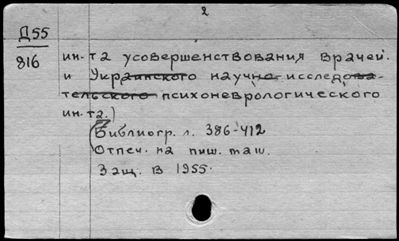 2
Д55
816
ин-та усовершенствования врачей.
и Украинского научно-исследова-
тельского психоневрологического
ин-та.)
Библиогр. л. 386-412
Отпеч. на пиш. маш.
Защ. в 1955.